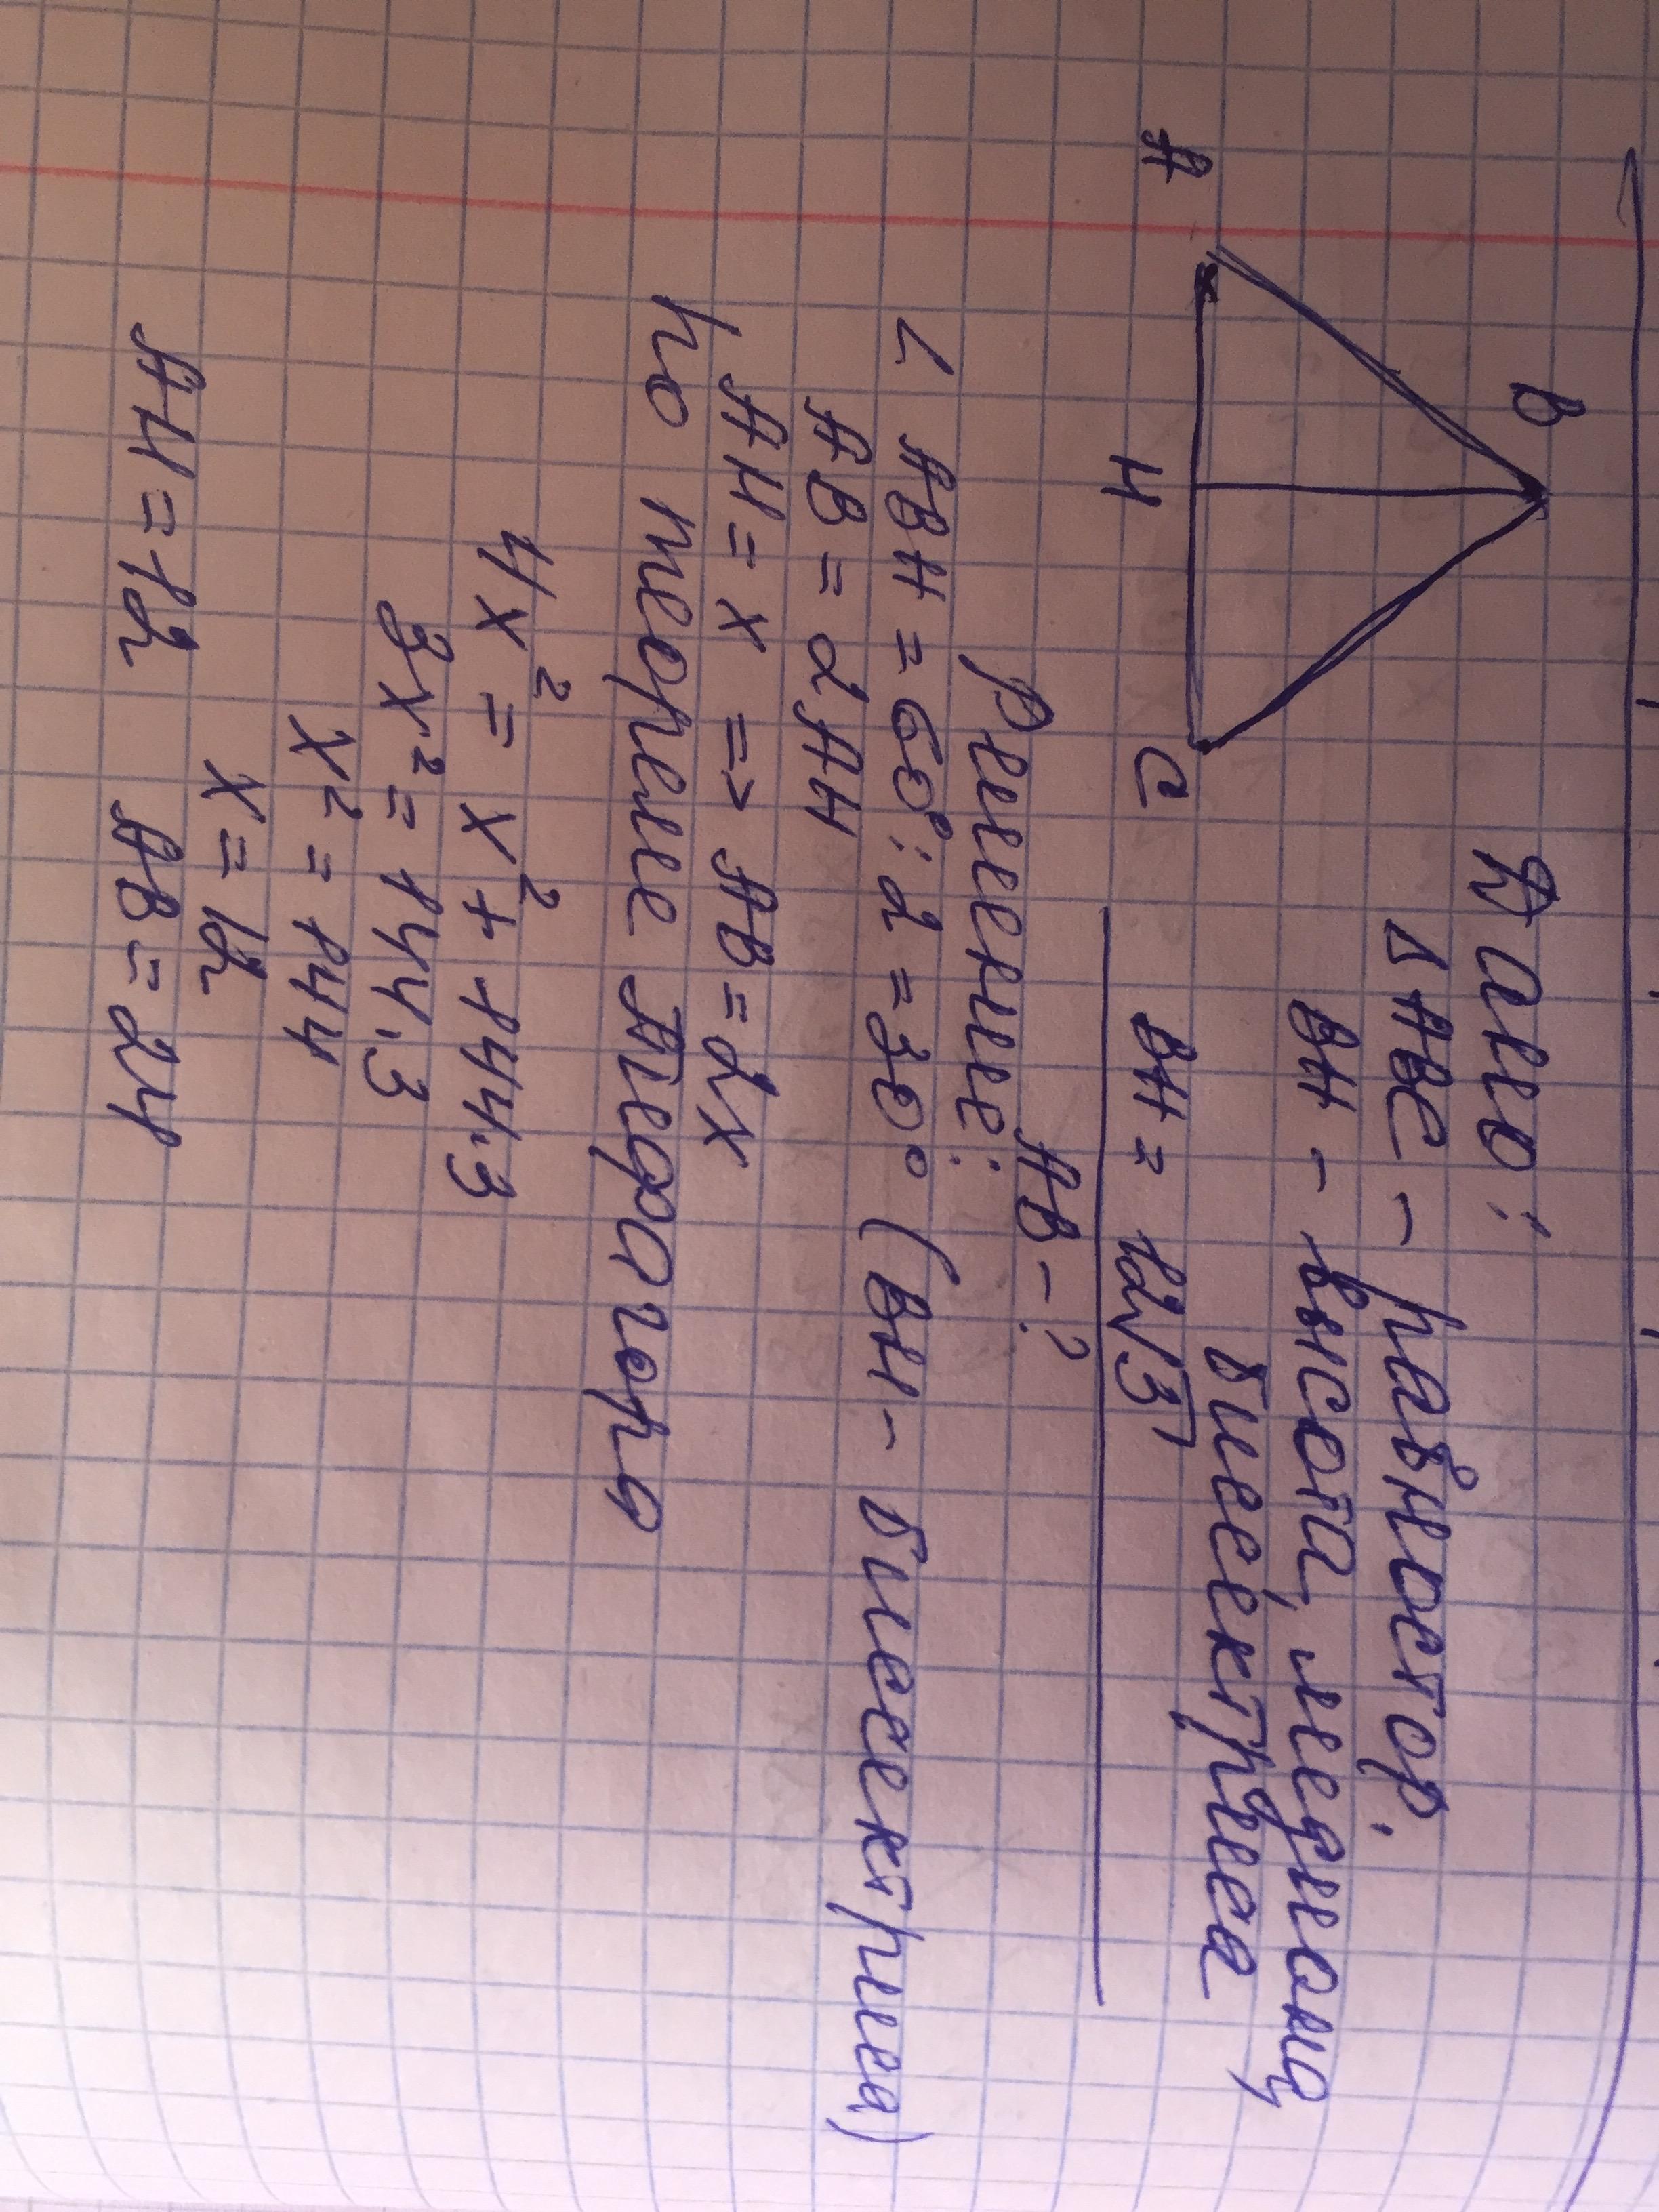 B
A
H
C
Дано:
Δ ABC - равностор.
BH - высота, медиана,
биссектриса
BH = 12√3
AB - ?
Решение:
∠ ABH = 60° : 2 = 30° (BH - биссектриса)
AB = 2AH
AH = x => AB = 2x
по теореме Пифагора
4x² = x² + 144.3
3x² = 144.3
x² = 144
x = 12
AH = 12 AB = 24